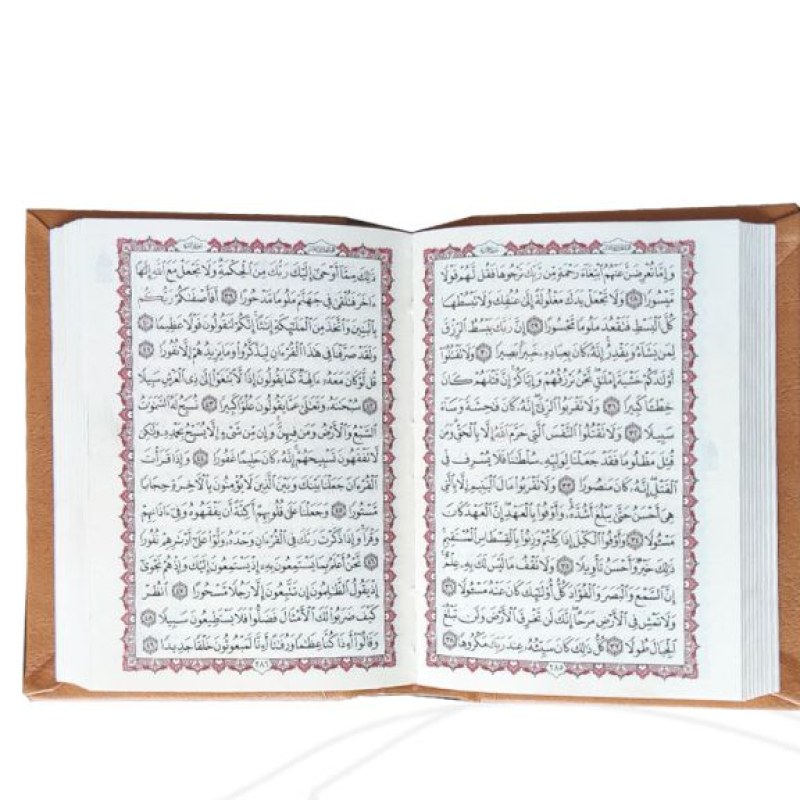 وَإِمَّا تُعْرِضَنَّ عَنْهُمُ ٱبْتِغَآءَ رَحْمَةٍ مِّن رَّبِّكَ تَرْجُوهَا فَقُل لَّهُمْ قَوْلًا
مَّيْسُورًا ٢٨ وَلَا تَجْعَلْ يَدَكَ مَغْلُولَةً إِلَىٰ عُنُقِكَ وَلَا تَبْسُطْهَا
كُلَّ ٱلْبَسْطِ فَتَقْعُدَ مَلُومًا مَّحْسُورًا ٢٩ إِنَّ رَبَّكَ يَبْسُطُ ٱلرِّزْقَ
لِمَن يَشَآءُ وَيَقْدِرُ إِنَّهُۥ كَانَ بِعِبَادِهِۦ خَبِيرًۢا بَصِيرًا ٣٠ وَلَا تَقْتُلُوٓا۟
أَوْلَٰدَكُمْ خَشْيَةَ إِمْلَٰقٍ نَّحْنُ نَرْزُقُهُمْ وَإِيَّاكُمْ إِنَّ قَتْلَهُمْ كَانَ
خِطْـًٔا كَبِيرًا ٣١ وَلَا تَقْرَبُوا۟ ٱلزِّنَىٰٓ إِنَّهُۥ كَانَ فَٰحِشَةً وَسَآءَ
سَبِيلًا ٣٢ وَلَا تَقْتُلُوا۟ ٱلنَّفْسَ ٱلَّتِى حَرَّمَ ٱللَّهُ إِلَّا بِٱلْحَقِّ وَمَن
قُتِلَ مَظْلُومًا فَقَدْ جَعَلْنَا لِوَلِيِّهِۦ سُلْطَٰنًا فَلَا يُسْرِف فِّى
ٱلْقَتْلِ إِنَّهُۥ كَانَ مَنصُورًا ٣٣ وَلَا تَقْرَبُوا۟ مَالَ ٱلْيَتِيمِ إِلَّا بِٱلَّتِى
هِىَ أَحْسَنُ حَتَّىٰ يَبْلُغَ أَشُدَّهُۥ وَأَوْفُوا۟ بِٱلْعَهْدِ إِنَّ ٱلْعَهْدَ كَانَ
مَسْـُٔولًا ٣٤ وَأَوْفُوا۟ ٱلْكَيْلَ إِذَا كِلْتُمْ وَزِنُوا۟ بِٱلْقِسْطَاسِ ٱلْمُسْتَقِيمِ
ذَٰلِكَ خَيْرٌ وَأَحْسَنُ تَأْوِيلًا ٣٥ وَلَا تَقْفُ مَا لَيْسَ لَكَ بِهِۦ عِلْمٌ
إِنَّ ٱلسَّمْعَ وَٱلْبَصَرَ وَٱلْفُؤَادَ كُلُّ أُو۟لَٰٓئِكَ كَانَ عَنْهُ مَسْـُٔولًا ٣٦
وَلَا تَمْشِ فِى ٱلْأَرْضِ مَرَحًا إِنَّكَ لَن تَخْرِقَ ٱلْأَرْضَ وَلَن تَبْلُغَ
ٱلْجِبَالَ طُولًا ٣٧ كُلُّ ذَٰلِكَ كَانَ سَيِّئُهُۥ عِندَ رَبِّكَ مَكْرُوهًا ٣٨
٢٨٥
ذَٰلِكَ مِمَّآ أَوْحَىٰٓ إِلَيْكَ رَبُّكَ مِنَ ٱلْحِكْمَةِ وَلَا تَجْعَلْ مَعَ ٱللَّهِ إِلَٰهًا
ءَاخَرَ فَتُلْقَىٰ فِى جَهَنَّمَ مَلُومًا مَّدْحُورًا ٣٩ أَفَأَصْفَىٰكُمْ رَبُّكُم
بِٱلْبَنِينَ وَٱتَّخَذَ مِنَ ٱلْمَلَٰٓئِكَةِ إِنَٰثًا إِنَّكُمْ لَتَقُولُونَ قَوْلًا عَظِيمًا ٤٠
وَلَقَدْ صَرَّفْنَا فِى هَٰذَا ٱلْقُرْءَانِ لِيَذَّكَّرُوا۟ وَمَا يَزِيدُهُمْ إِلَّا نُفُورًا ٤١
قُل لَّوْ كَانَ مَعَهُۥٓ ءَالِهَةٌ كَمَا يَقُولُونَ إِذًا لَّٱبْتَغَوْا۟ إِلَىٰ ذِى ٱلْعَرْشِ سَبِيلًا
٤٢ سُبْحَٰنَهُۥ وَتَعَٰلَىٰ عَمَّا يَقُولُونَ عُلُوًّا كَبِيرًا ٤٣ تُسَبِّحُ لَهُ ٱلسَّمَٰوَٰتُ
ٱلسَّبْعُ وَٱلْأَرْضُ وَمَن فِيهِنَّ وَإِن مِّن شَىْءٍ إِلَّا يُسَبِّحُ بِحَمْدِهِۦ وَلَٰكِن
لَّا تَفْقَهُونَ تَسْبِيحَهُمْ إِنَّهُۥ كَانَ حَلِيمًا غَفُورًا ٤٤ وَإِذَا قَرَأْتَ
ٱلْقُرْءَانَ جَعَلْنَا بَيْنَكَ وَبَيْنَ ٱلَّذِينَ لَا يُؤْمِنُونَ بِٱلْءَاخِرَةِ حِجَابًا
مَّسْتُورًا ٤٥ وَجَعَلْنَا عَلَىٰ قُلُوبِهِمْ أَكِنَّةً أَن يَفْقَهُوهُ وَفِىٓ ءَاذَانِهِمْ
وَقْرًا وَإِذَا ذَكَرْتَ رَبَّكَ فِى ٱلْقُرْءَانِ وَحْدَهُۥ وَلَّوْا۟ عَلَىٰٓ أَدْبَٰرِهِمْ نُفُورًا
٤٦ نَّحْنُ أَعْلَمُ بِمَا يَسْتَمِعُونَ بِهِۦٓ إِذْ يَسْتَمِعُونَ إِلَيْكَ وَإِذْ هُمْ نَجْوَىٰٓ
إِذْ يَقُولُ ٱلظَّٰلِمُونَ إِن تَتَّبِعُونَ إِلَّا رَجُلًا مَّسْحُورًا ٤٧ ٱنظُرْ
كَيْفَ ضَرَبُوا۟ لَكَ ٱلْأَمْثَالَ فَضَلُّوا۟ فَلَا يَسْتَطِيعُونَ سَبِيلًا ٤٨
وَقَالُوٓا۟ أَءِذَا كُنَّا عِظَٰمًا وَرُفَٰتًا أَءِنَّا لَمَبْعُوثُونَ خَلْقًا جَدِيدًا ٤٩
٢٨٦